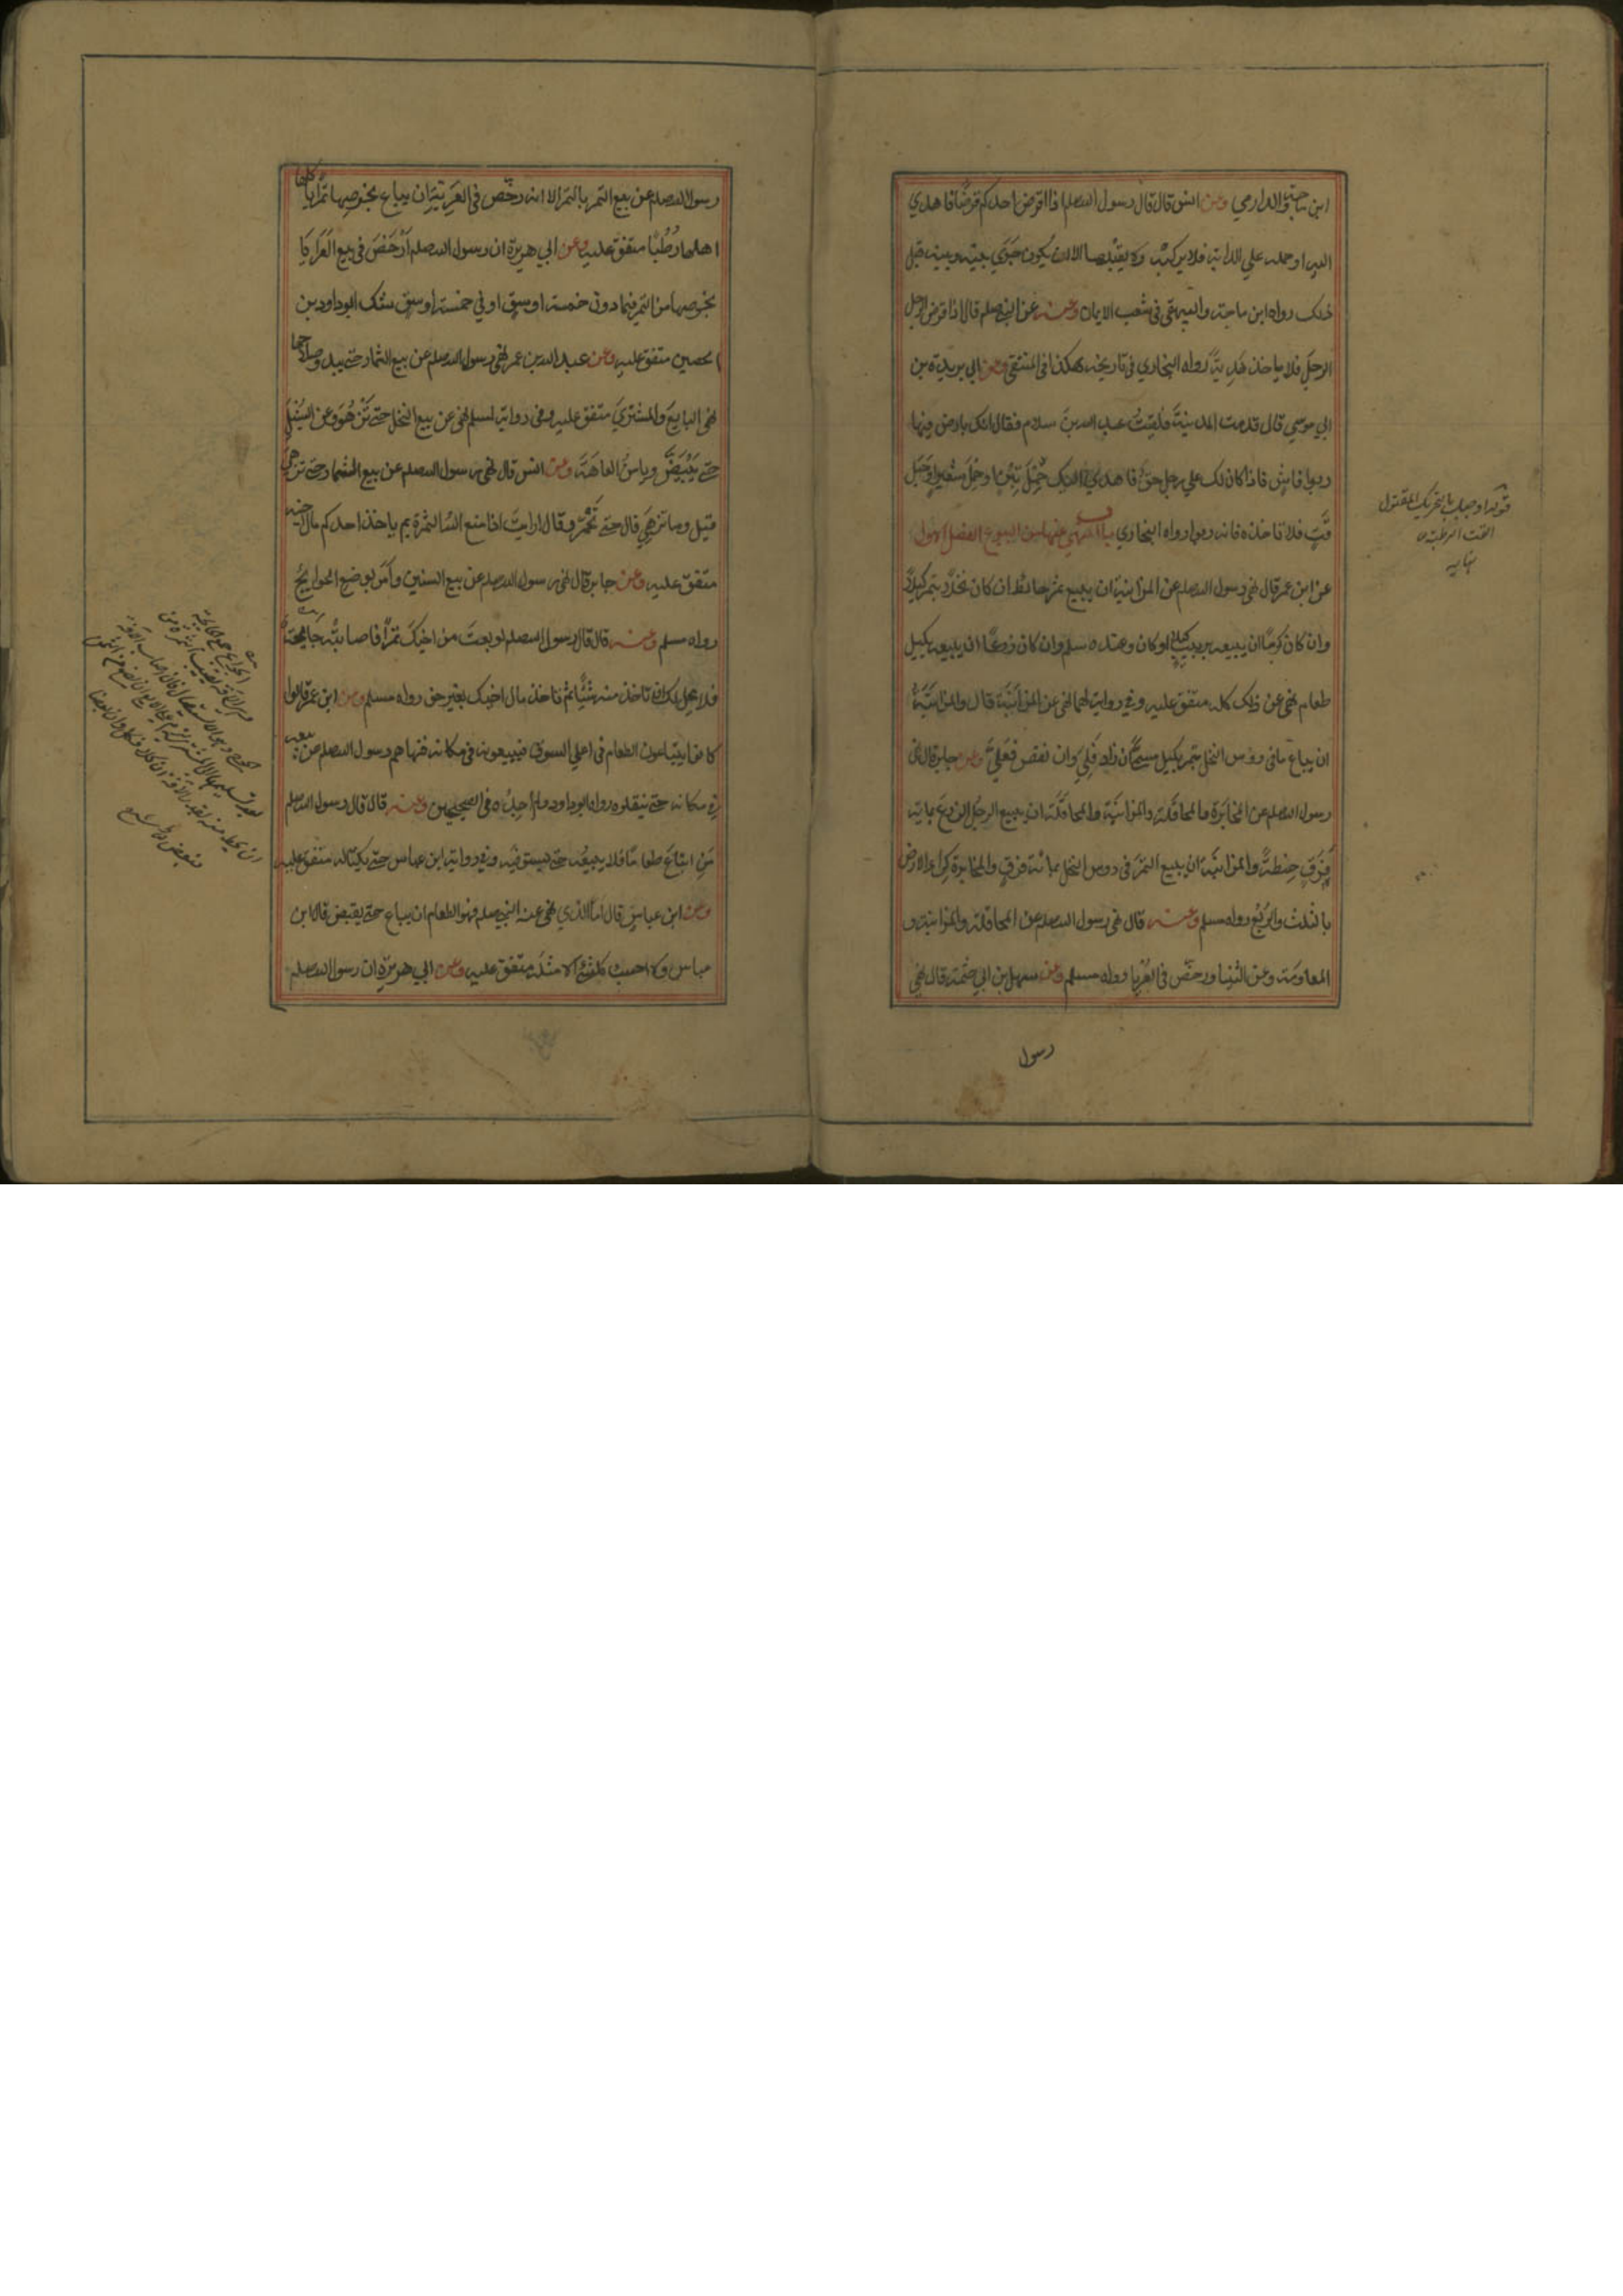 ابن ماجة والدارمي وعن انس قال قال رسول الله صلم اذا اقرض احدكم قرضا فاهدي
اليه او حمله علي الدابة فلا يركبه ولا يقبلها الا ان يكون جري بينه وبينه قبل
ذلك رواه ابن ماجة والبيهقي في شعب الايمان وعنه عن النبي صلم قال اذا اقرض الرجل
الرجل فلا ياخذ هدية رواه البخاري في تاريخه هكذا في المنتقي وعن ابي بردة بن
ابي موسي قال قدمت المدينة فلقيت عبد الله بن سلام فقال انك بارض فيها
ربوا فاش فاذا كان لك علي رجل حق فاهدي اليك حمل تبن او حمل شعير او حبل
قت فلا تاخذه فانه ربوا رواه البخاري باب المنهي عنها من البيوع الفصل الاول
عن ابن عمر قال نهي رسول الله صلم عن المزابنة ان يبيع ثمر حائطه ان كان نخلا بتمر كيلا
وان كان كرما ان يبيعه بزبيب كيلا او كان وعند مسلم وان كان زرعا ان يبيعه بكيل
طعام نهي عن ذلك كله متفق عليه وفي رواية لهما نهي عن المزابنة قال والمزابنة
ان يباع ما في روس النخل بتمر بكيل مسمي ان زاد فلي وان نقص فعلي وعن جابر قال نهي
رسول الله صلم عن المخابرة والمحاقلة والمزابنة والمحاقلة ان يبيع الرجل الزرع بماية
فرق حنطة والمزابنة ان يبيع التمر في روس النخل بمائة فرق والمخابرة كراء الارض
بالثلث والربع رواه مسلم وعنه قال نهي رسول الله صلم عن المحاقلة والمزابنة و
المعاومة وعن الثنيا ورخص في العرايا رواه مسلم وعن سهل بن ابي حثمة قال نهي
رسول
قوله او حبل بالتحريك المفتول
القت الرطبة
نهايه
رسول الله صلم عن بيع التمر بالتمر الا انه رخص في العرية ان يباع بخرصها تمرا ياكلها
اهلها رطبا متفق عليه وعن ابي هريرة ان رسول الله صلم ارخص في بيع العرايا
بخرصها من التمر فيما دون خمسة اوسق او في خمسة اوسق شك ابو داود بن
الحصين متفق عليه وعن عبد الله بن عمر نهي رسول الله صلم عن بيع الثمار حتي يبدو صلاحها
نهي البايع والمشتري متفق عليه وفي رواية لمسلم نهي عن بيع النخل حتي تزهو وعن السنبل
حتي يبيض ويامن العاهة وعن انس قال نهي رسول الله صلم عن بيع الثمار حتي تزهي
قيل وما تزهي قال حتي تحمر وقال ارايت اذا منع الله الثمرة بم ياخذ احدكم مال اخيه
متفق عليه وعن جابر قال نهي رسول الله صلم عن بيع السنين وامر بوضع الجوايح
رواه مسلم وعنه قال قال رسول الله صلم لو بعت من اخيك تمرا فاصابته جائحة
فلا يحل لك ان تاخذ منه شيئا بم تاخذ مال اخيك بغير حق رواه مسلم وعن ابن عمر قالوا
كانوا يبتاعون الطعام في اعلي السوق فيبيعونه في مكانه فنهاهم رسول الله صلم عن بيعه
في مكانه حتي ينقلوه رواه ابو داود ولم اجده في الصحيحين وعنه قال قال رسول الله صلم
من ابتاع طعاما فلا يبيعه حتي يستوفيه وفي رواية ابن عباس حتي يكتاله متفق عليه
وعن ابن عباس قال اما الذي نهي عنه النبي صلم فهو الطعام ان يباع حتي يقبض قال ابن
عباس ولا احسب كل شيء الا مثله متفق عليه وعن ابي هريرة ان رسول الله صلم